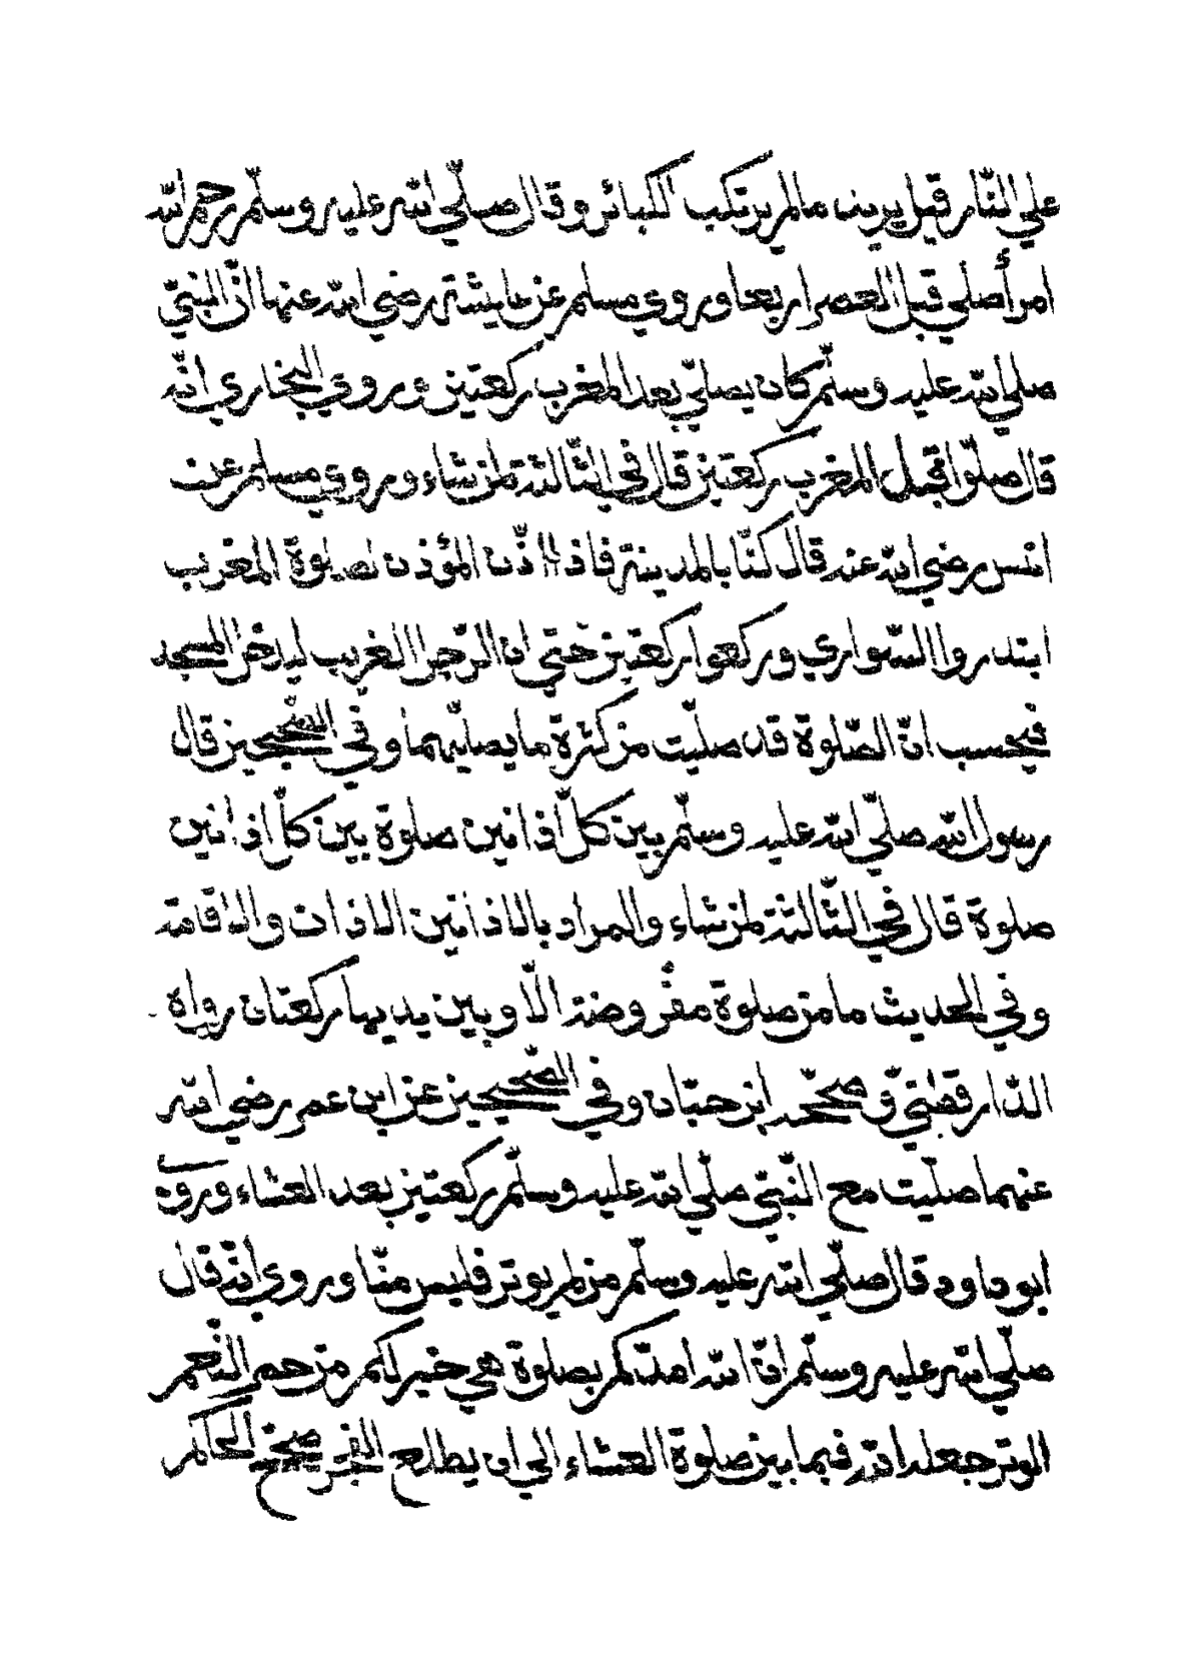 على النار قيل يريد ما لم يرتكب الكبائر وقال صلّى الله عليه وسلّم رحم الله
امرأ صلي قبل العصر اربعا وروي مسلم عن عايشة رضي الله عنها انّ النبيّ
صلي الله عليه وسلّم كان يصلّي بعد المغرب ركعتين وروي البخاري انّه
قال صلّوا قبل المغرب ركعتين قال في الثّالثة لمن شاء وروي مسلم عن
انس رضي الله عنه قال كنّا بالمدينة فاذا اذّن المؤذن لصلوة المغرب
ابتدروا السّواري وركعوا ركعتين حتي ان الرّجل الغريب ليدخل المسجد
فيحسب انّ الصّلوة قد صليّت من كثرة ما يصلّيهما وفي الصّحيحين قال
رسول الله صلّي الله عليه وسلّم بين كلّ اذانين صلوة بين كلّ اذانين
صلوة قال في الثّالثة لمن شاء والمراد بالاذانين الاذان والاقامة
وفي الحديث ما من صلوة مفروضة الّا وبين يديها ركعتان رواه
الدّارقطنيّ وصحّحه ابن حبّان وفي الصّحيحين عن ابن عمر رضي الله
عنهما صليّت مع النّبيّ صلّي الله عليه وسلّم ركعتين بعد العشاء وروي
ابو داود قال صلّي الله عليه وسلّم من لم يوتر فليس منّا وروي انّه قال
صلّي الله عليه وسلّم انّ الله امدّكم بصلوة هي خير لكم من حمر النّعم
الوتر جعله الله فيما بين صلوة العشاء الي ان يطلع الفجر صحّح الحاكم